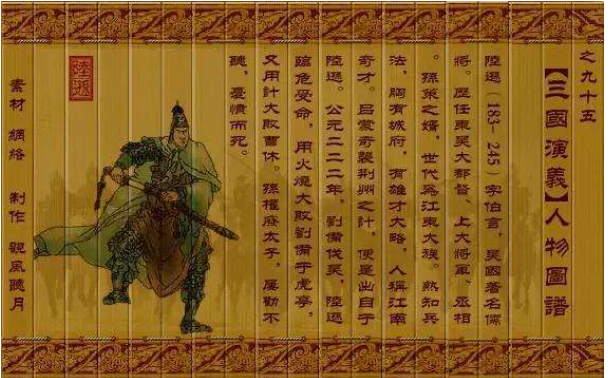 之九十五
【三國演義】人物圖譜
陸遜（183-245）字伯言，吳國著名儒
將。歷任東吳大都督、上大將軍、丞相
。孫策之婿，世代爲江東大族。熟知兵
法，胸有城府，有雄才大略。人稱江南
奇才。呂蒙奇襲荆州之計，便是出自于
陸遜。公元二二二年，劉備伐吳，陸遜
臨危受命，用火燒大敗劉備于虎亭，
又用計大敗曹休。孫權廢太子，屢勸不
聽，憂憤而死。
陸遜
素材 網絡 制作 觀風聽月